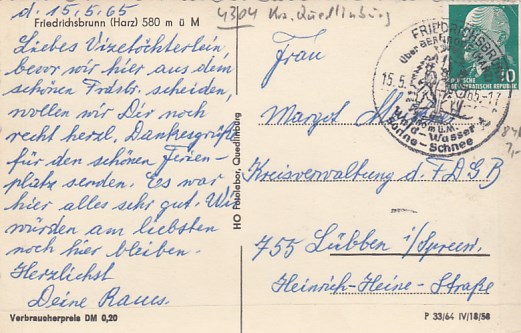 d. 15.5.65
Friedrichsbrunn (Harz) 580 m ü M
Liebes Vizetöchterlein,
bevor wir hier aus dem
schönen Frdstr. scheiden,
wollen wir Dir noch
recht herzl. Dankesgrüße
für den schönen Ferien-
platz senden. Es war
hier alles sehr gut. Wir
würden am liebsten
noch hier bleiben.
Herzlichst
Deine
Verbraucherpreis DM 0,20
HO Fotolabor, Quedlinburg
4304 Krs. Quedlinburg
FRIEDRICHSBRUNN
über
15.5.65-17
Wald - Wasser
Sonne - Schnee
DEUTSCHE
DEMOKRATISCHE REPUBLIK
10
Frau
Margot
Kreisverwaltung d. FDGB
755 Lübben i/Spreew.
Heinrich-Heine-Straße
P 33/64 IV/18/58